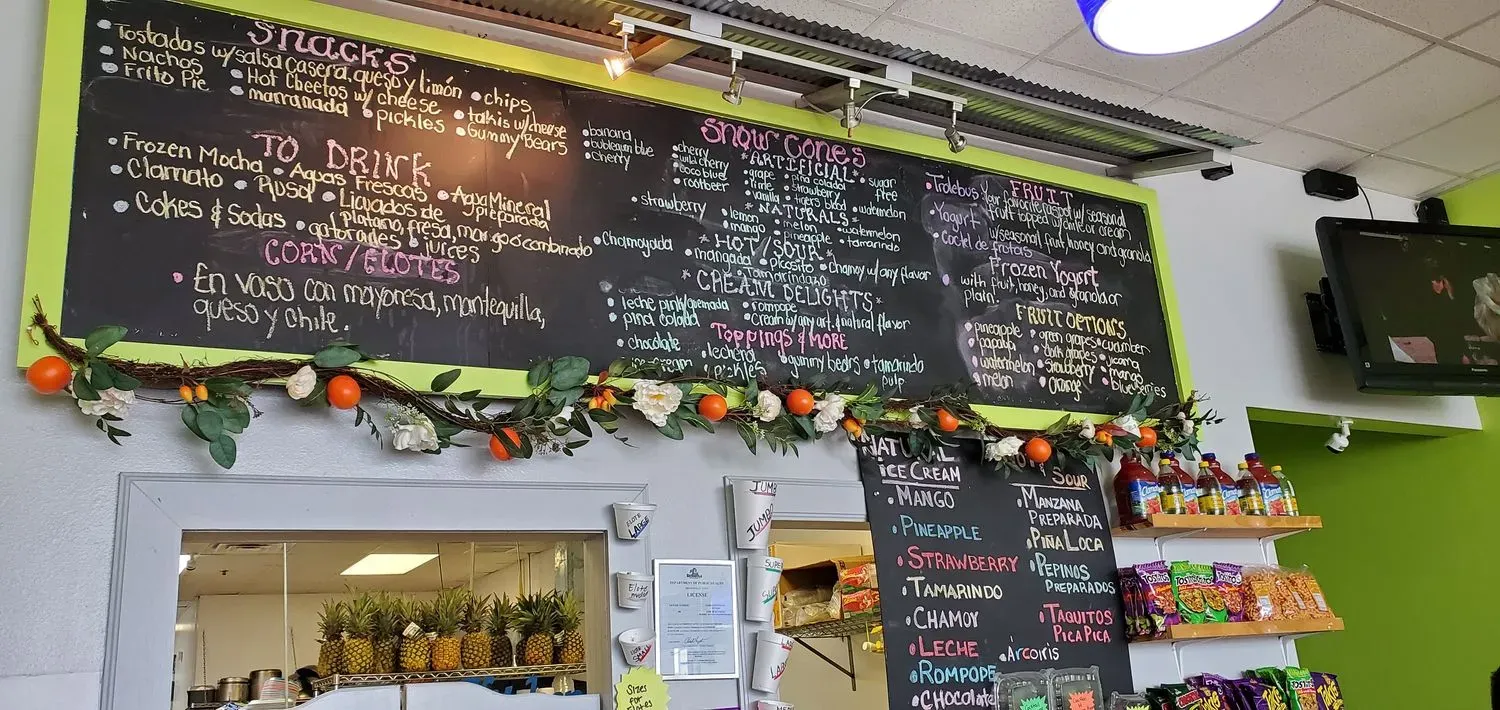 Snacks
• Tostados w/salsa casera, queso y limón
• chips
• Nachos
• Hot Cheetos w/ cheese
• takis w/cheese
• Frito Pie
• marranada
• pickles
• Gummy Bears
TO DRINK
• Frozen Mocha
• Aguas Frescas
• Agua Mineral preparada
• Clamato
• Rusa
• Licuados de platano, fresa, mango o combinado
• Cokes & Sodas
• gatorades
• juices
CORN/ELOTES
• En vaso con mayonesa, mantequilla,
queso y chile.
Snow Cones
*ARTIFICIAL*
• banana
• bublegum blue
• cherry
• cherry
• wild cherry
• coco blue
• rootbeer
• grape
• lime
• vanilla
• pina colada
• strawberry
• tigers blood
• sugar free
• watermelon
*NATURALS*
• strawberry
• lemon
• mango
• melon
• pineapple
• watermelon
• tamarindo
*HOT/SOUR*
• Chamoyada
• mangada
• Picosito
• chamoy w/any flavor
Tamarindazo
*CREAM DELIGHTS*
• leche, pink/quemada
• rompope
• pina colada
• cream w/any art. & natural flavor
Toppings & MORE
• chocolate
• lechera
• gummy bears
• tamarindo pulp
ice-cream
• pickles
FRUIT
• Trolebus
Your favorite
fruit topped w/
cream
• Yogurt
w/seasonal fruit, honey and granola
• Coctel de frutas
Frozen Yogurt
with fruit, honey, and granola or
plain.
FRUIT OPTIONS
• pineapple
• green grapes
• cucumber
• papaya
• dark grapes
• jicama
• watermelon
• strawberry
• mango
• melon
• orange
• blueberries
NATURAL
ICE CREAM
• MANGO
• PINEAPPLE
• STRAWBERRY
• TAMARINDO
• CHAMOY
• LECHE
• ROMPOPE
• CHOCOLATE
SOUR
• MANZANA
PREPARADA
• PIÑA LOCA
• PEPINOS
PREPARADOS
• TAQUITOS
PICA PICA
• Arcoiris
ELOTE
LARGE
Elote
JUMBO
JUMBO
SUPER
LARGE
Sizes
for
Elotes
LICENSE
Panasonic
Tostitos
Takis